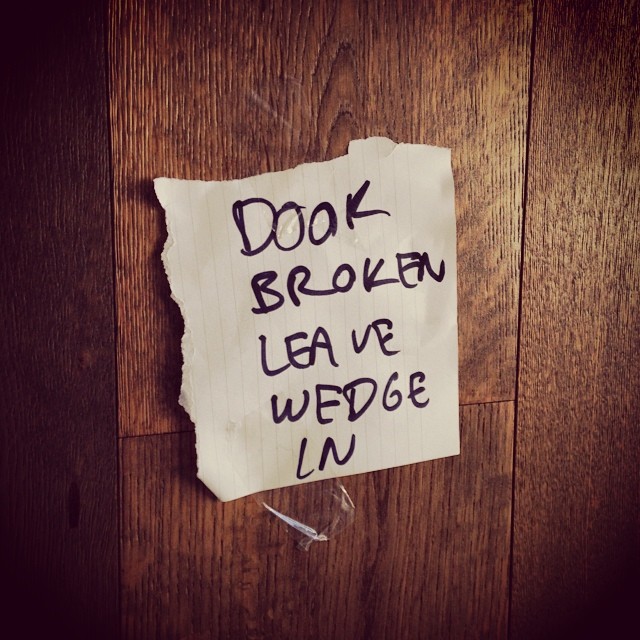 DOOR
BROKEN
LEAVE
WEDGE
IN